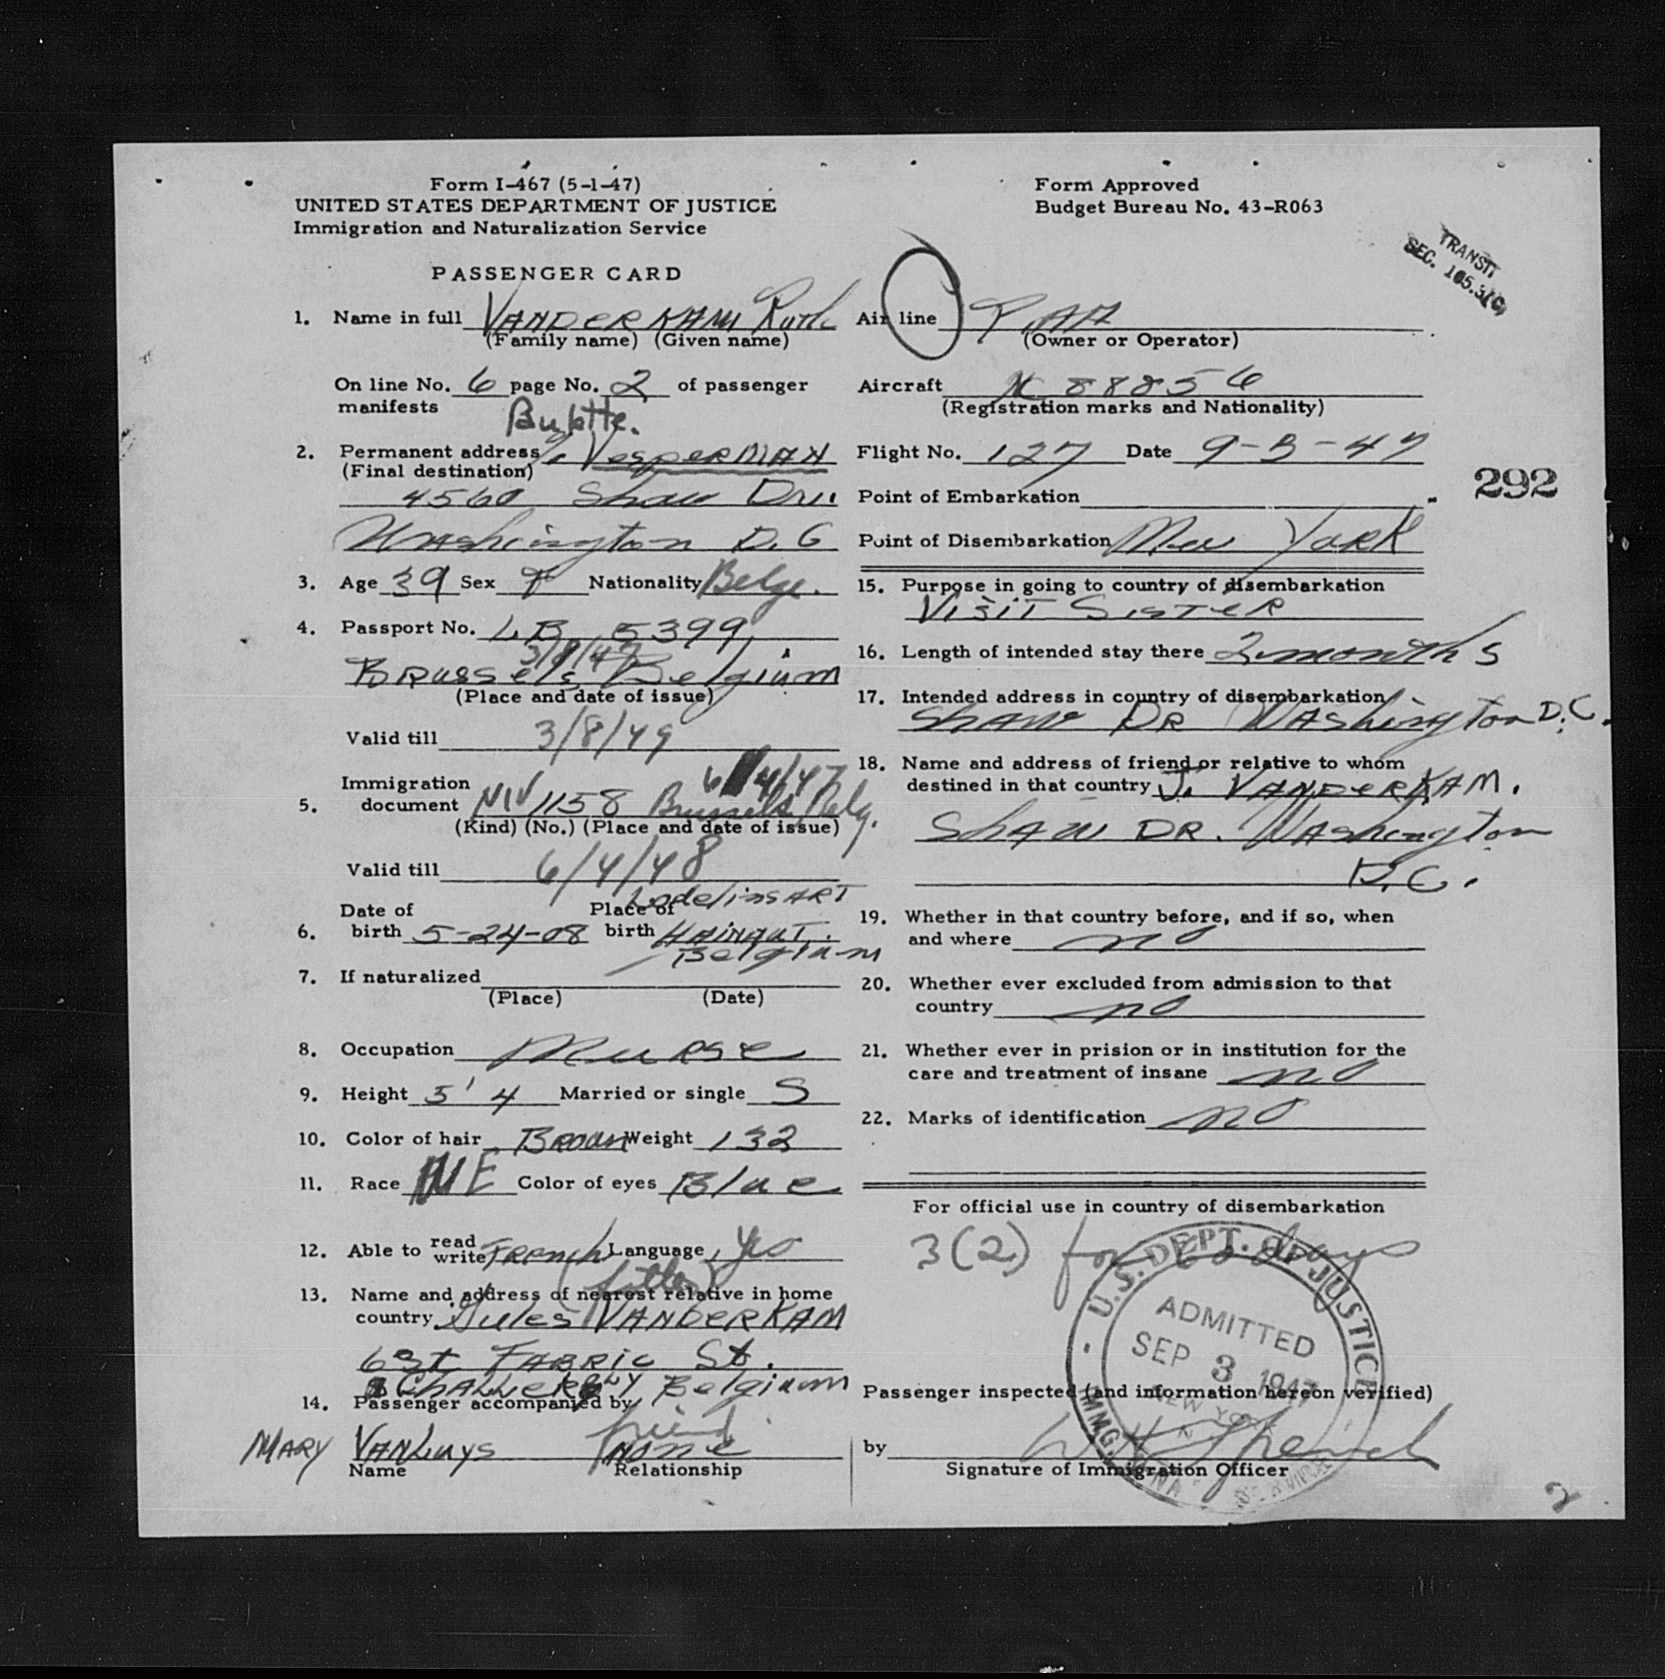 Form I-467 (5-1-47)
UNITED STATES DEPARTMENT OF JUSTICE
Immigration and Naturalization Service
PASSENGER CARD
Form Approved
Budget Bureau No. 43-R063
TRANSIT.
SEC.
1. Name in full VANDERKAM Ruth
(Family name) (Given name)
On line No. 6 page No. 2 of passenger
manifests
2. Permanent address VesperMAN
(Final destination)
4560 Shaw Dr.
Washington D.C
3. Age 39 Sex F Nationality Belge.
4. Passport No. LB 5399
3/8/47
Brussels Belgium
(Place and date of issue)
Valid till 3/8/49
Immigration 6/4/47
5. document NIV 1158 Brussels Belg.
(Kind) (No.) (Place and date of issue)
Valid till 6/4/48
LodelinsART
Date of Place of
6. birth 5-24-08 birth HAINAUT.
Belgium
7. If naturalized
(Place) (Date)
8. Occupation Nurse
9. Height 5' 4 Married or single S
10. Color of hair Brown Weight 132
11. Race Color of eyes Blue
12. Able to read write French Language yes
(father)
13. Name and address of nearest relative in home
country Jules VANDERKAM
63t FABRIC St.
Belgium
14. Passenger accompanied by
friend
MARY VANLuys none
Name Relationship
Air line P.AA
(Owner or Operator)
Aircraft N 88856
(Registration marks and Nationality)
Flight No. 127 Date 9-3-47
292
Point of Embarkation
Point of Disembarkation New York
15. Purpose in going to country of disembarkation
VISIT SISTER
16. Length of intended stay there 2 months
17. Intended address in country of disembarkation
Shaw DR Washington D.C.
18. Name and address of friend or relative to whom
destined in that country J. VANDERKAM.
SHAW DR. Washington
D.C.
19. Whether in that country before, and if so, when
and where no
20. Whether ever excluded from admission to that
country no
21. Whether ever in prision or in institution for the
care and treatment of insane no
22. Marks of identification no
For official use in country of disembarkation
3(2) for days
U.S. DEPT. OF JUSTICE
ADMITTED
SEP 3 1947
NEW YORK
Passenger inspected (and information hereon verified)
by
Signature of Immigration Officer
2